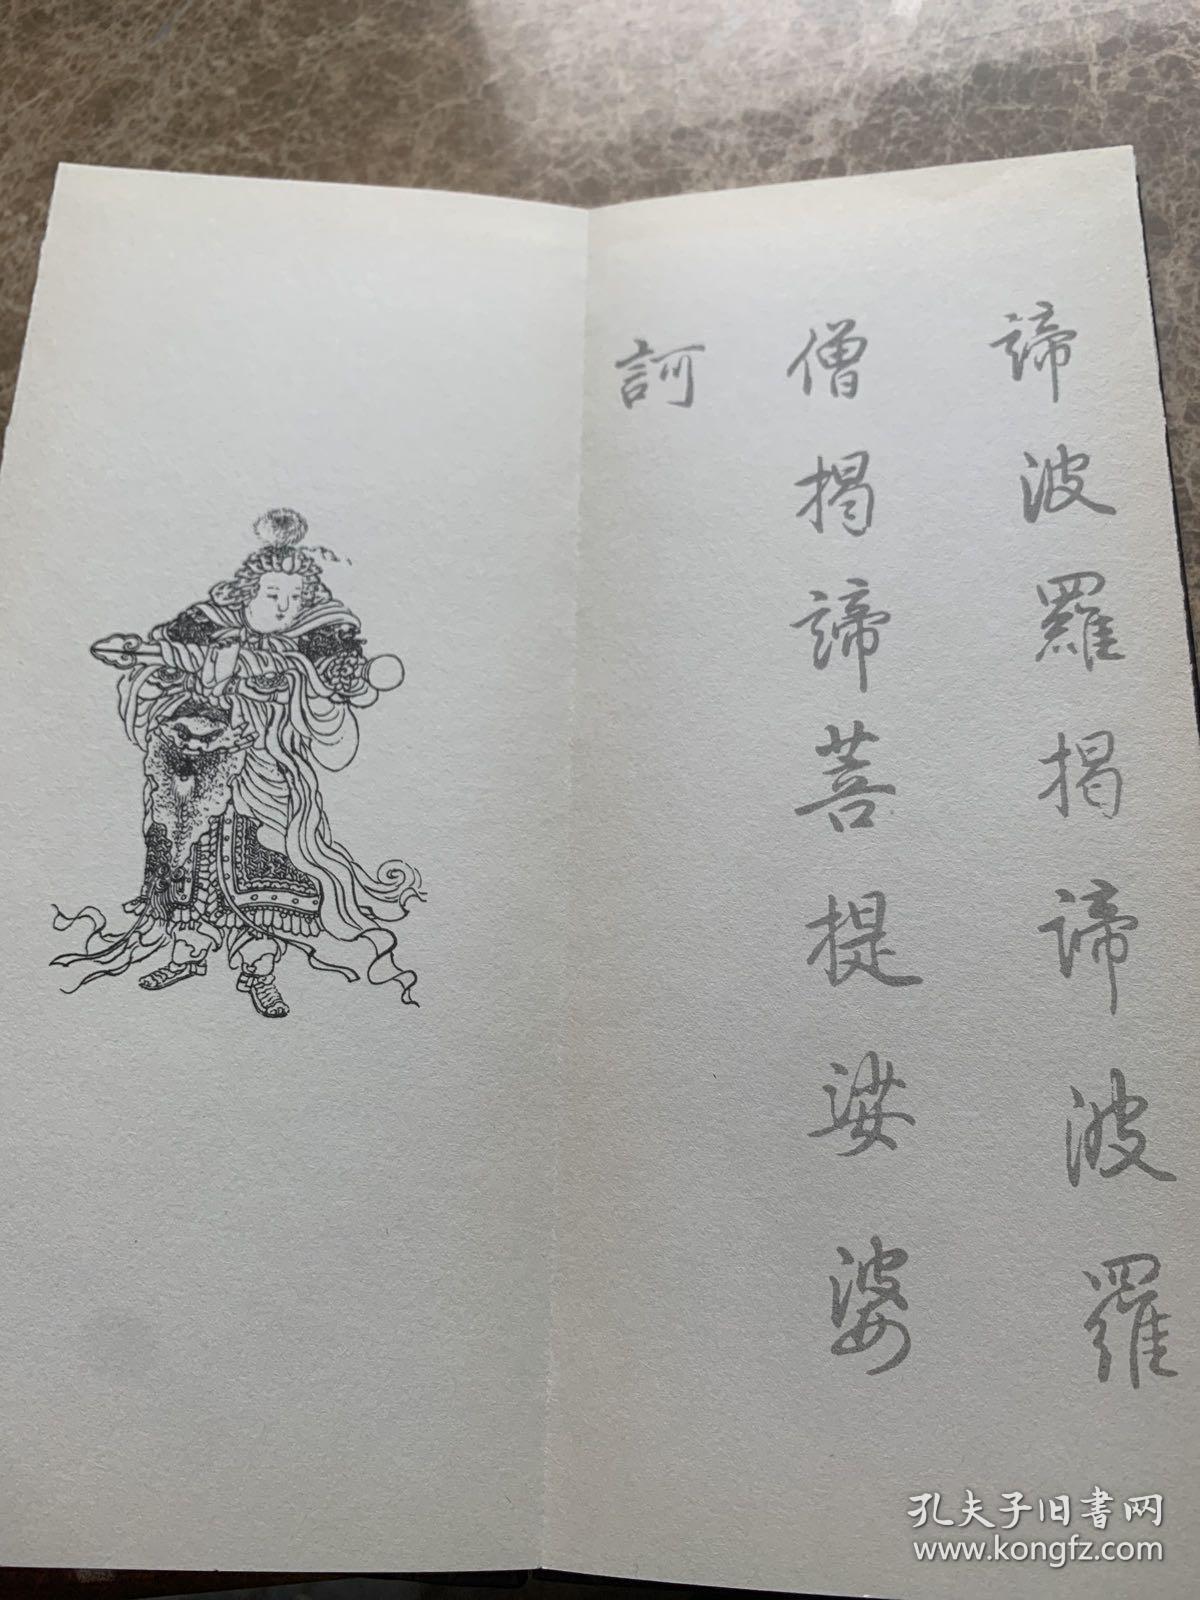 諦波羅揭諦波羅
僧揭諦菩提娑婆
訶
孔夫子旧书网
www.kongfz.com